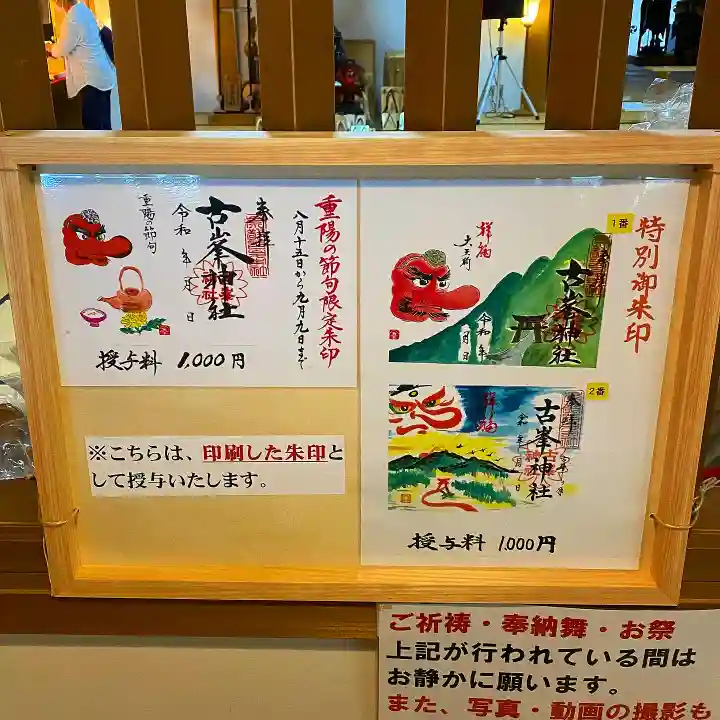 重陽の節句限定朱印
八月十五日から九月九日まで
奉拝
古峯神社
令和 年 月 日
重陽の節句
授与料 1,000円
※こちらは、印刷した朱印と
して授与いたします。
特別御朱印
1番
奉拝
古峯神社
令和 年
月 日
祥福
大天狗
2番
奉拝
古峯神社
令和 年 月 日
祥福
授与料 1,000円
ご祈祷・奉納舞・お祭
上記が行われている間は
お静かに願います。
また、写真・動画の撮影も